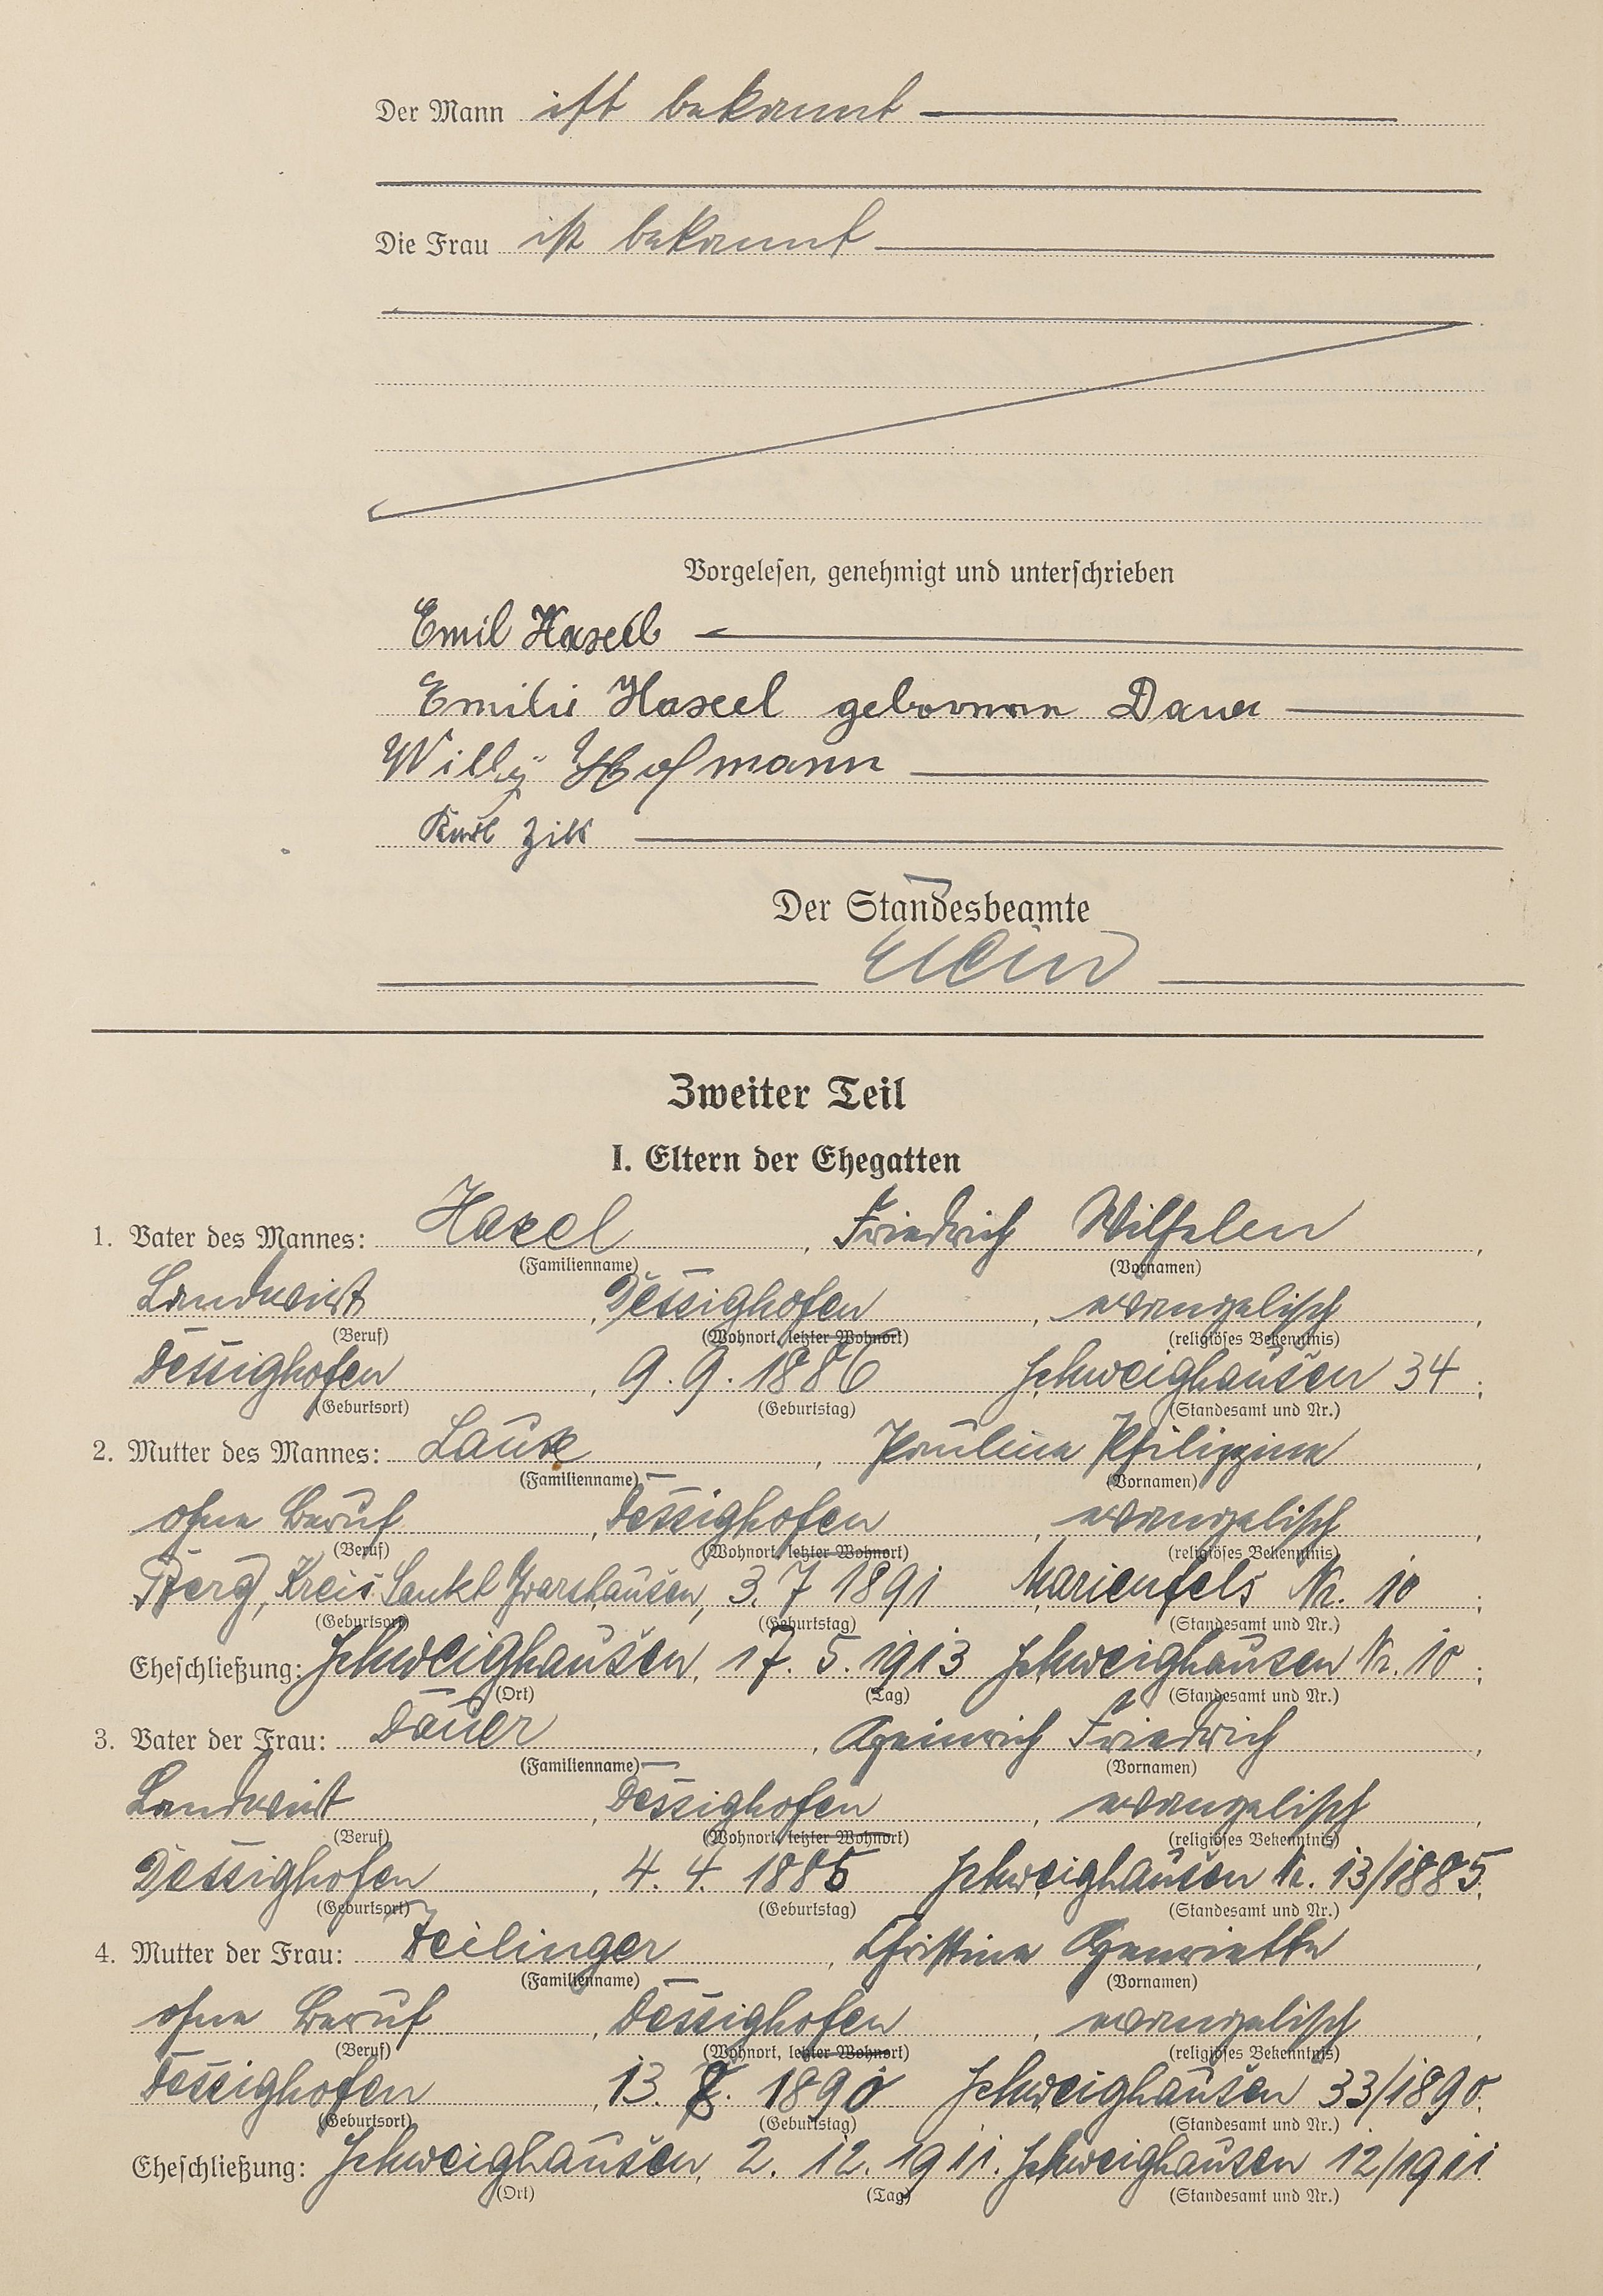 Der Mann ist bekannt
Die Frau ist bekannt
Vorgelesen, genehmigt und unterschrieben
Emil Haxel
Emilie Haxel geborene Dauer
Willy Hofmann
Karl
Der Standesbeamte
Zweiter Teil
I. Eltern der Ehegatten
1. Vater des Mannes: Haxel, Friedrich Wilhelm,
(Familienname) (Vornamen)
Landwirt, Dessighofen, evangelisch,
(Beruf) (Wohnort, letzter Wohnort) (religiöses Bekenntnis)
Dessighofen, 9. 9. 1886 Schweighausen 34;
(Geburtsort) (Geburtstag) (Standesamt und Nr.)
2. Mutter des Mannes: Laux, Pauline Philippine,
(Familienname) (Vornamen)
ohne Beruf, Dessighofen, evangelisch,
(Beruf) (Wohnort, letzter Wohnort) (religiöses Bekenntnis)
Berg, Kreis Sankt Goarshausen, 3. 7 1891 Marienfels Nr. 10;
(Geburtsort) (Geburtstag) (Standesamt und Nr.)
Eheschließung: Schweighausen, 17. 5. 1913 Schweighausen Nr. 10;
(Ort) (Tag) (Standesamt und Nr.)
3. Vater der Frau: Dauer, Heinrich Friedrich,
(Familienname) (Vornamen)
Landwirt, Dessighofen, evangelisch,
(Beruf) (Wohnort, letzter Wohnort) (religiöses Bekenntnis)
Dessighofen, 4. 4. 1885 Schweighausen Nr. 13/1885.
(Geburtsort) (Geburtstag) (Standesamt und Nr.)
4. Mutter der Frau: Feilinger, Christine Henriette,
(Familienname) (Vornamen)
ohne Beruf, Dessighofen, evangelisch,
(Beruf) (Wohnort, letzter Wohnort) (religiöses Bekenntnis)
Dessighofen, 13. 1890 Schweighausen 33/1890.
(Geburtsort) (Geburtstag) (Standesamt und Nr.)
Eheschließung: Schweighausen, 2. 12. 1911. Schweighausen 12/1911.
(Ort) (Tag) (Standesamt und Nr.)